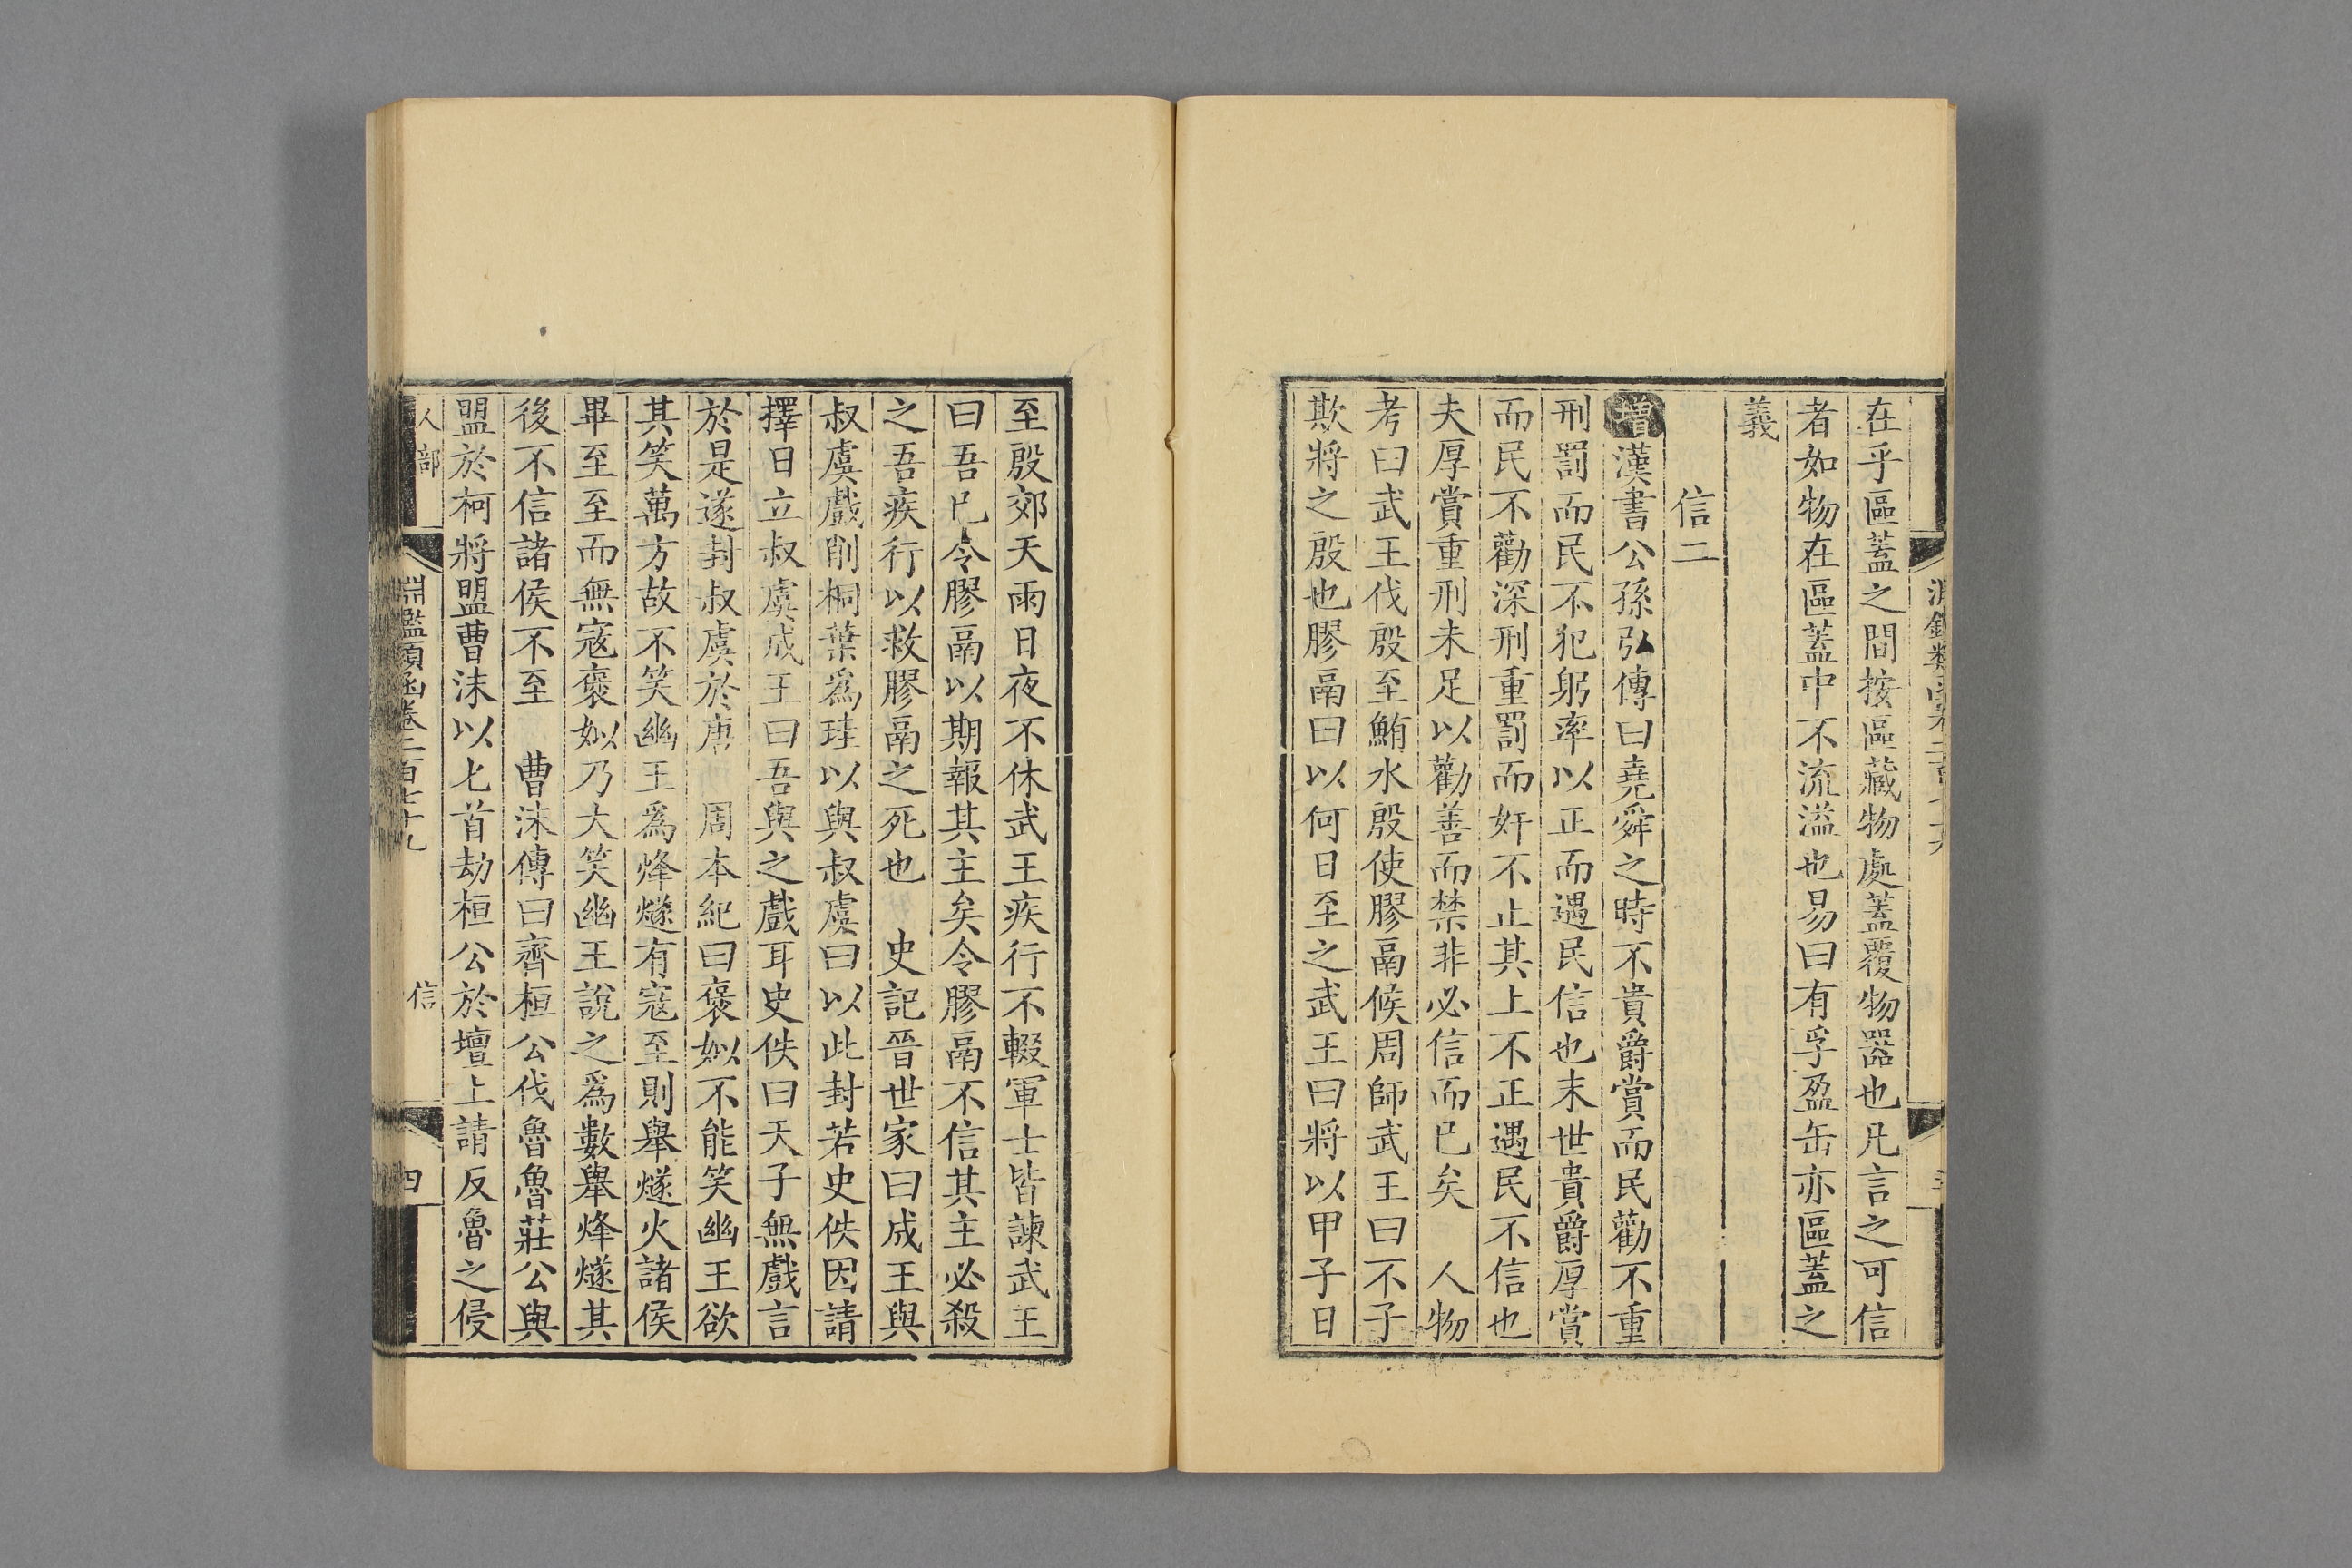 在乎區蓋之間按區藏物處蓋覆物器也凡言之可信
者如物在區蓋中不流溢也易曰有孚盈缶亦區蓋之
義
信二
增漢書公孫弘傳曰堯舜之時不貴爵賞而民勸不重
刑罰而民不犯躬率以正而遇民信也末世貴爵厚賞
而民不勸深刑重罰而奸不止其上不正遇民不信也
夫厚賞重刑未足以勸善而禁非必信而已矣　人物
考曰武王伐殷至鮪水殷使膠鬲候周師武王曰不子
欺將之殷也膠鬲曰以何日至之武王曰將以甲子日
至殷郊天雨日夜不休武王疾行不輟軍士皆諫武王
曰吾已令膠鬲以期報其主矣令膠鬲不信其主必殺
之吾疾行以救膠鬲之死也　史記晉世家曰成王與
叔虞戲削桐葉為珪以與叔虞曰以此封若史佚因請
擇日立叔虞成王曰吾與之戲耳史佚曰天子無戲言
於是遂封叔虞於唐　周本紀曰褒姒不能笑幽王欲
其笑萬方故不笑幽王為烽燧有寇至則舉燧火諸侯
畢至至而無寇褒姒乃大笑幽王說之爲數舉烽燧其
後不信諸侯不至　曹沫傳曰齊桓公伐魯魯莊公與
盟於柯將盟曹沫以匕首劫桓公於壇上請反魯之侵
人部　淵鑑類函卷二百七十九　信　四